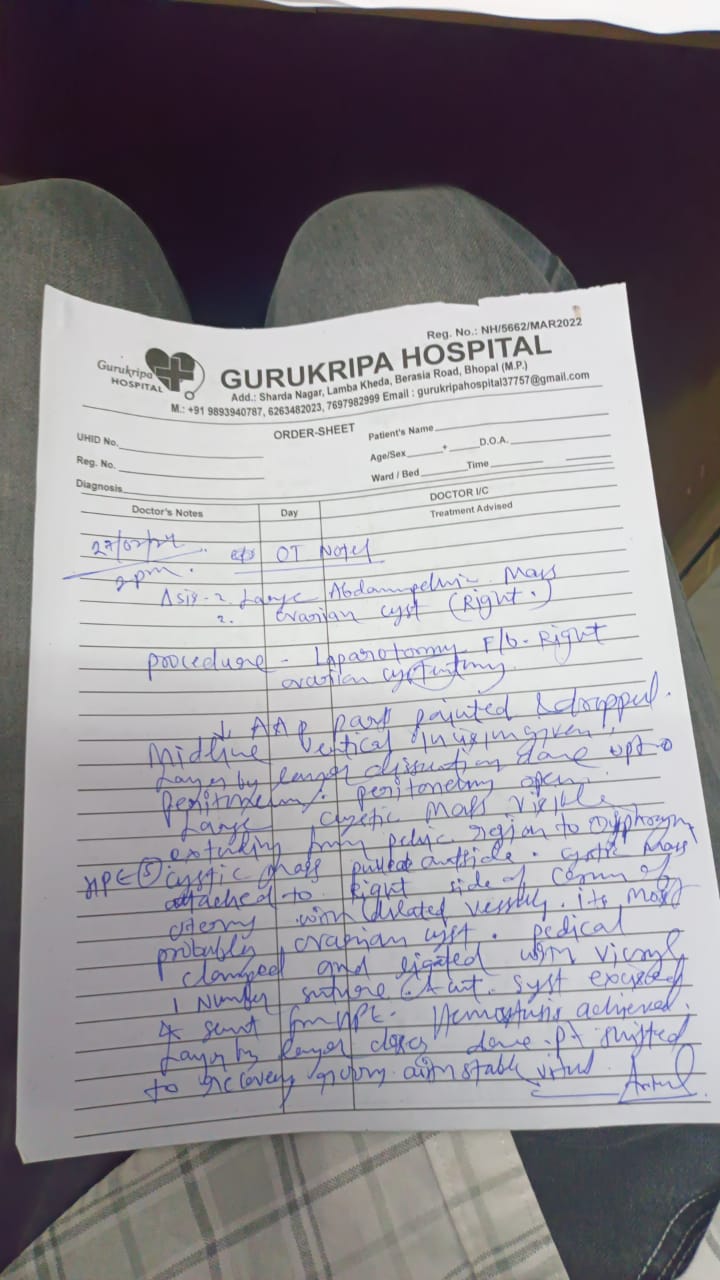 Reg. No.: NH/5662/MAR2022
Gurukripa
HOSPITAL
GURUKRIPA HOSPITAL
Add.: Sharda Nagar, Lamba Kheda, Berasia Road, Bhopal (M.P.)
M.: +91 9893940787, 6263482023, 7697982999 Email : gurukripahospital37757@gmail.com
ORDER-SHEET
UHID No.
Patient's Name
Reg. No.
Age/Sex + D.O.A.
Ward / Bed Time
Diagnosis
Doctor's Notes Day DOCTOR I/C
Treatment Advised
OT Notes
2pm.
Large Abdomnopelvic Mass
2. ovarian cyst (Right.)
procedure - Laparotomy F/b- Right
ovarian
AAP part painted & drapped.
Midline vertical incision given,
Layer by layer dissection done upto
peritoneum. peritoneum open.
Large cystic Mass visible
extending from pelvic region to
HPE (S) cystic mass pulled outside. cystic Mass
attached to Right side of
uterus with dilated vessels. its most
probably ovarian cyst. pedical
clamped and ligated with vicryl
1 Number suture & cut. syst excised
& sent for HPE. Hemostasis achieved,
Layer by layer done. Pt shifted
to recovery room with stable vital.